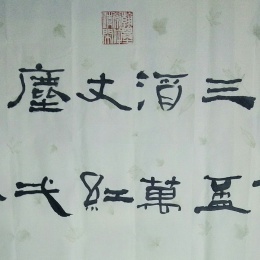 三盃
酒萬
丈紅
塵弌